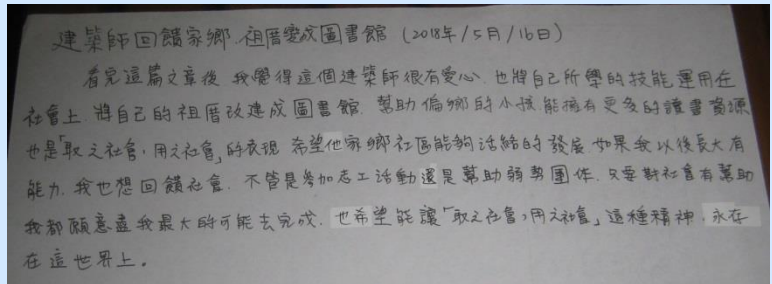 建築師回饋家鄉.祖厝變成圖書館 (2018年/5月/16日)
看完這篇文章後 我覺得這個建築師很有愛心.也將自己所學的技能運用在
社會上 將自己的祖厝改建成圖書館.幫助偏鄉的小孩能擁有更多的讀書資源
也是「取之社會,用之社會」的表現 希望他家鄉社區能夠活絡的發展 如果我以後長大有
能力.我也想回饋社會.不管是參加志工活動還是幫助弱勢團体.只要對社會有幫助
我都願意盡我最大的可能去完成.也希望能讓「取之社會,用之社會」這種精神.永存
在這世界上。